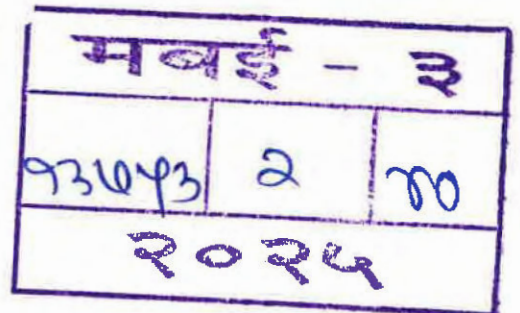 मबई - ३
१३७५३ २
२०२५